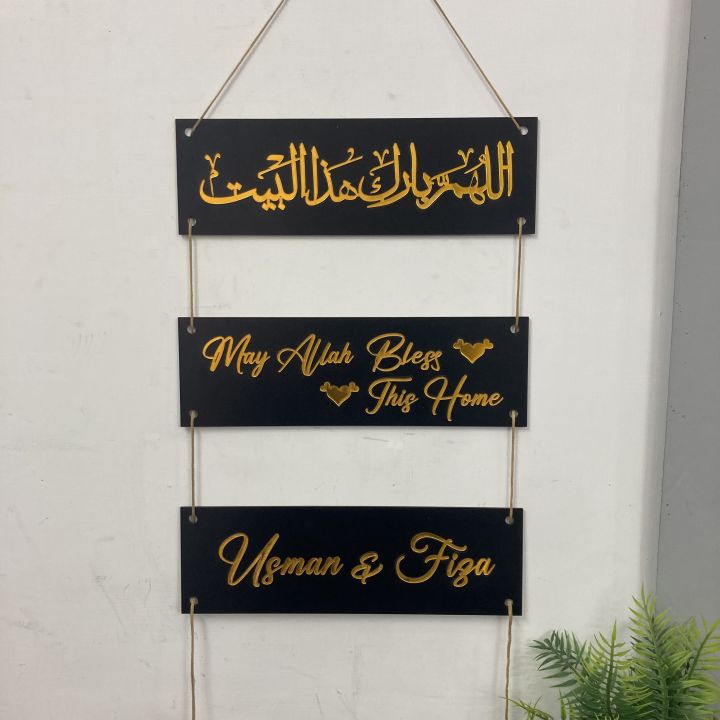 اللهم بارك هذا البيت
May Allah Bless
This Home
Usman & Fiza